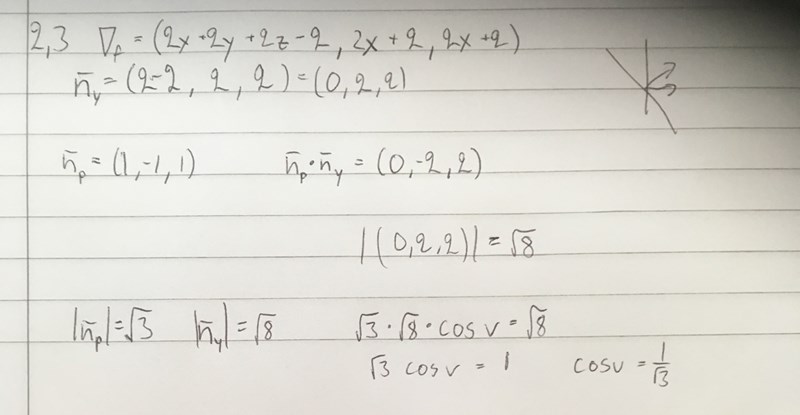 2,3 ∇f = (2x+2y+2z-2, 2x+2, 2x+2)
n̄y = (2-2, 2, 2) = (0,2,2)
n̄p = (1,-1,1) n̄p·n̄y = (0,-2,2)
|(0,2,2)| = √8
|n̄p|=√3 |n̄y|=√8 √3·√8·cos v = √8
√3 cos v = 1 cos v = 1/√3